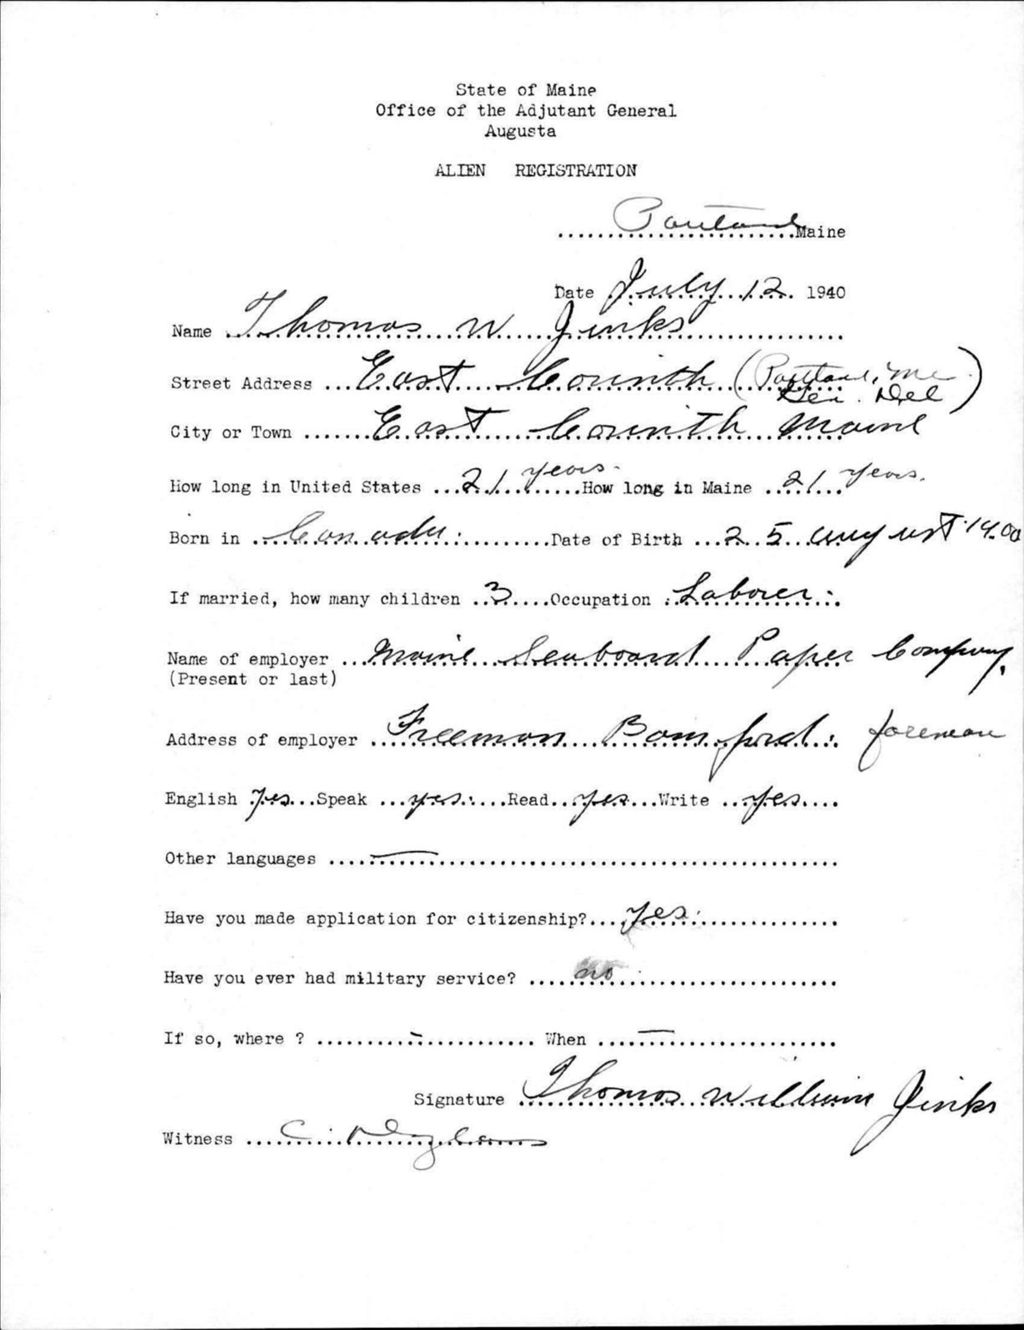 State of Maine
Office of the Adjutant General
Augusta
ALIEN REGISTRATION
Portland Maine
Date July 12 1940
Name Thomas W Jinks
Street Address East Corinth (Portland, Me.
Gen. Del)
City or Town East Corinth Maine
How long in United States 21 years. How long in Maine 21 years.
Born in Canada. Date of Birth 25 august 1900
If married, how many children 3 Occupation Laborer.
Name of employer Maine Seaboard Paper Company.
(Present or last)
Address of employer Freeman Bamford. foreman
English Yes Speak yes. Read yes Write yes
Other languages —
Have you made application for citizenship? Yes.
Have you ever had military service? no.
If so, where ? - When —
Signature Thomas William Jinks
Witness C.